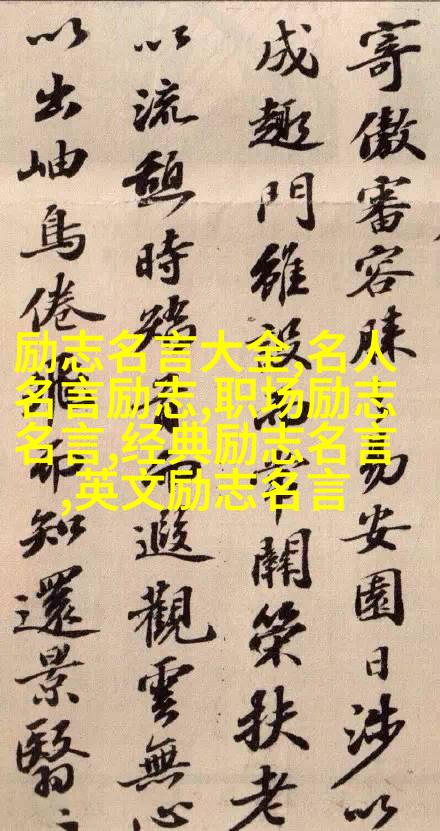 寄傲審容膝之易安園日涉以
成趣門雖設而常關策扶老
以流憩時矯首而遐觀雲無心
以出岫鳥倦飛而知還景翳〻
励志名言大全,名人
名言励志,职场励志
名言,经典励志名言
,英文励志名言